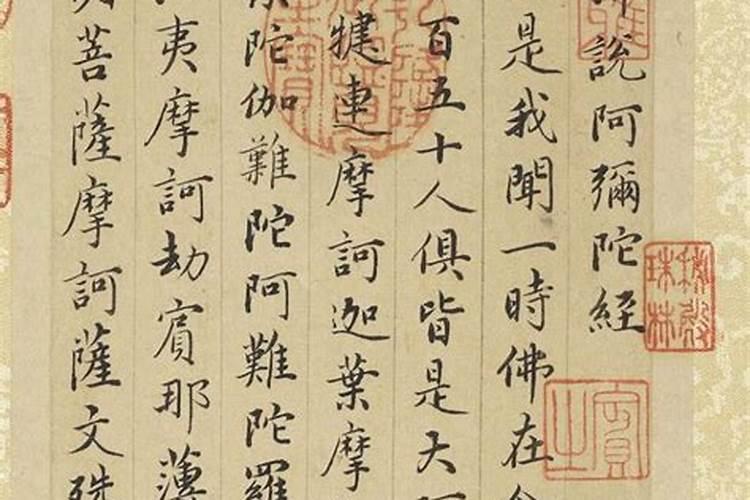 說阿彌陀經
是我聞一時佛在
百五十人俱皆是大
犍連摩訶迦葉摩
陀伽難陀阿難陀羅
夷摩訶劫賓那薄
菩薩摩訶薩文殊
秘殿珠林